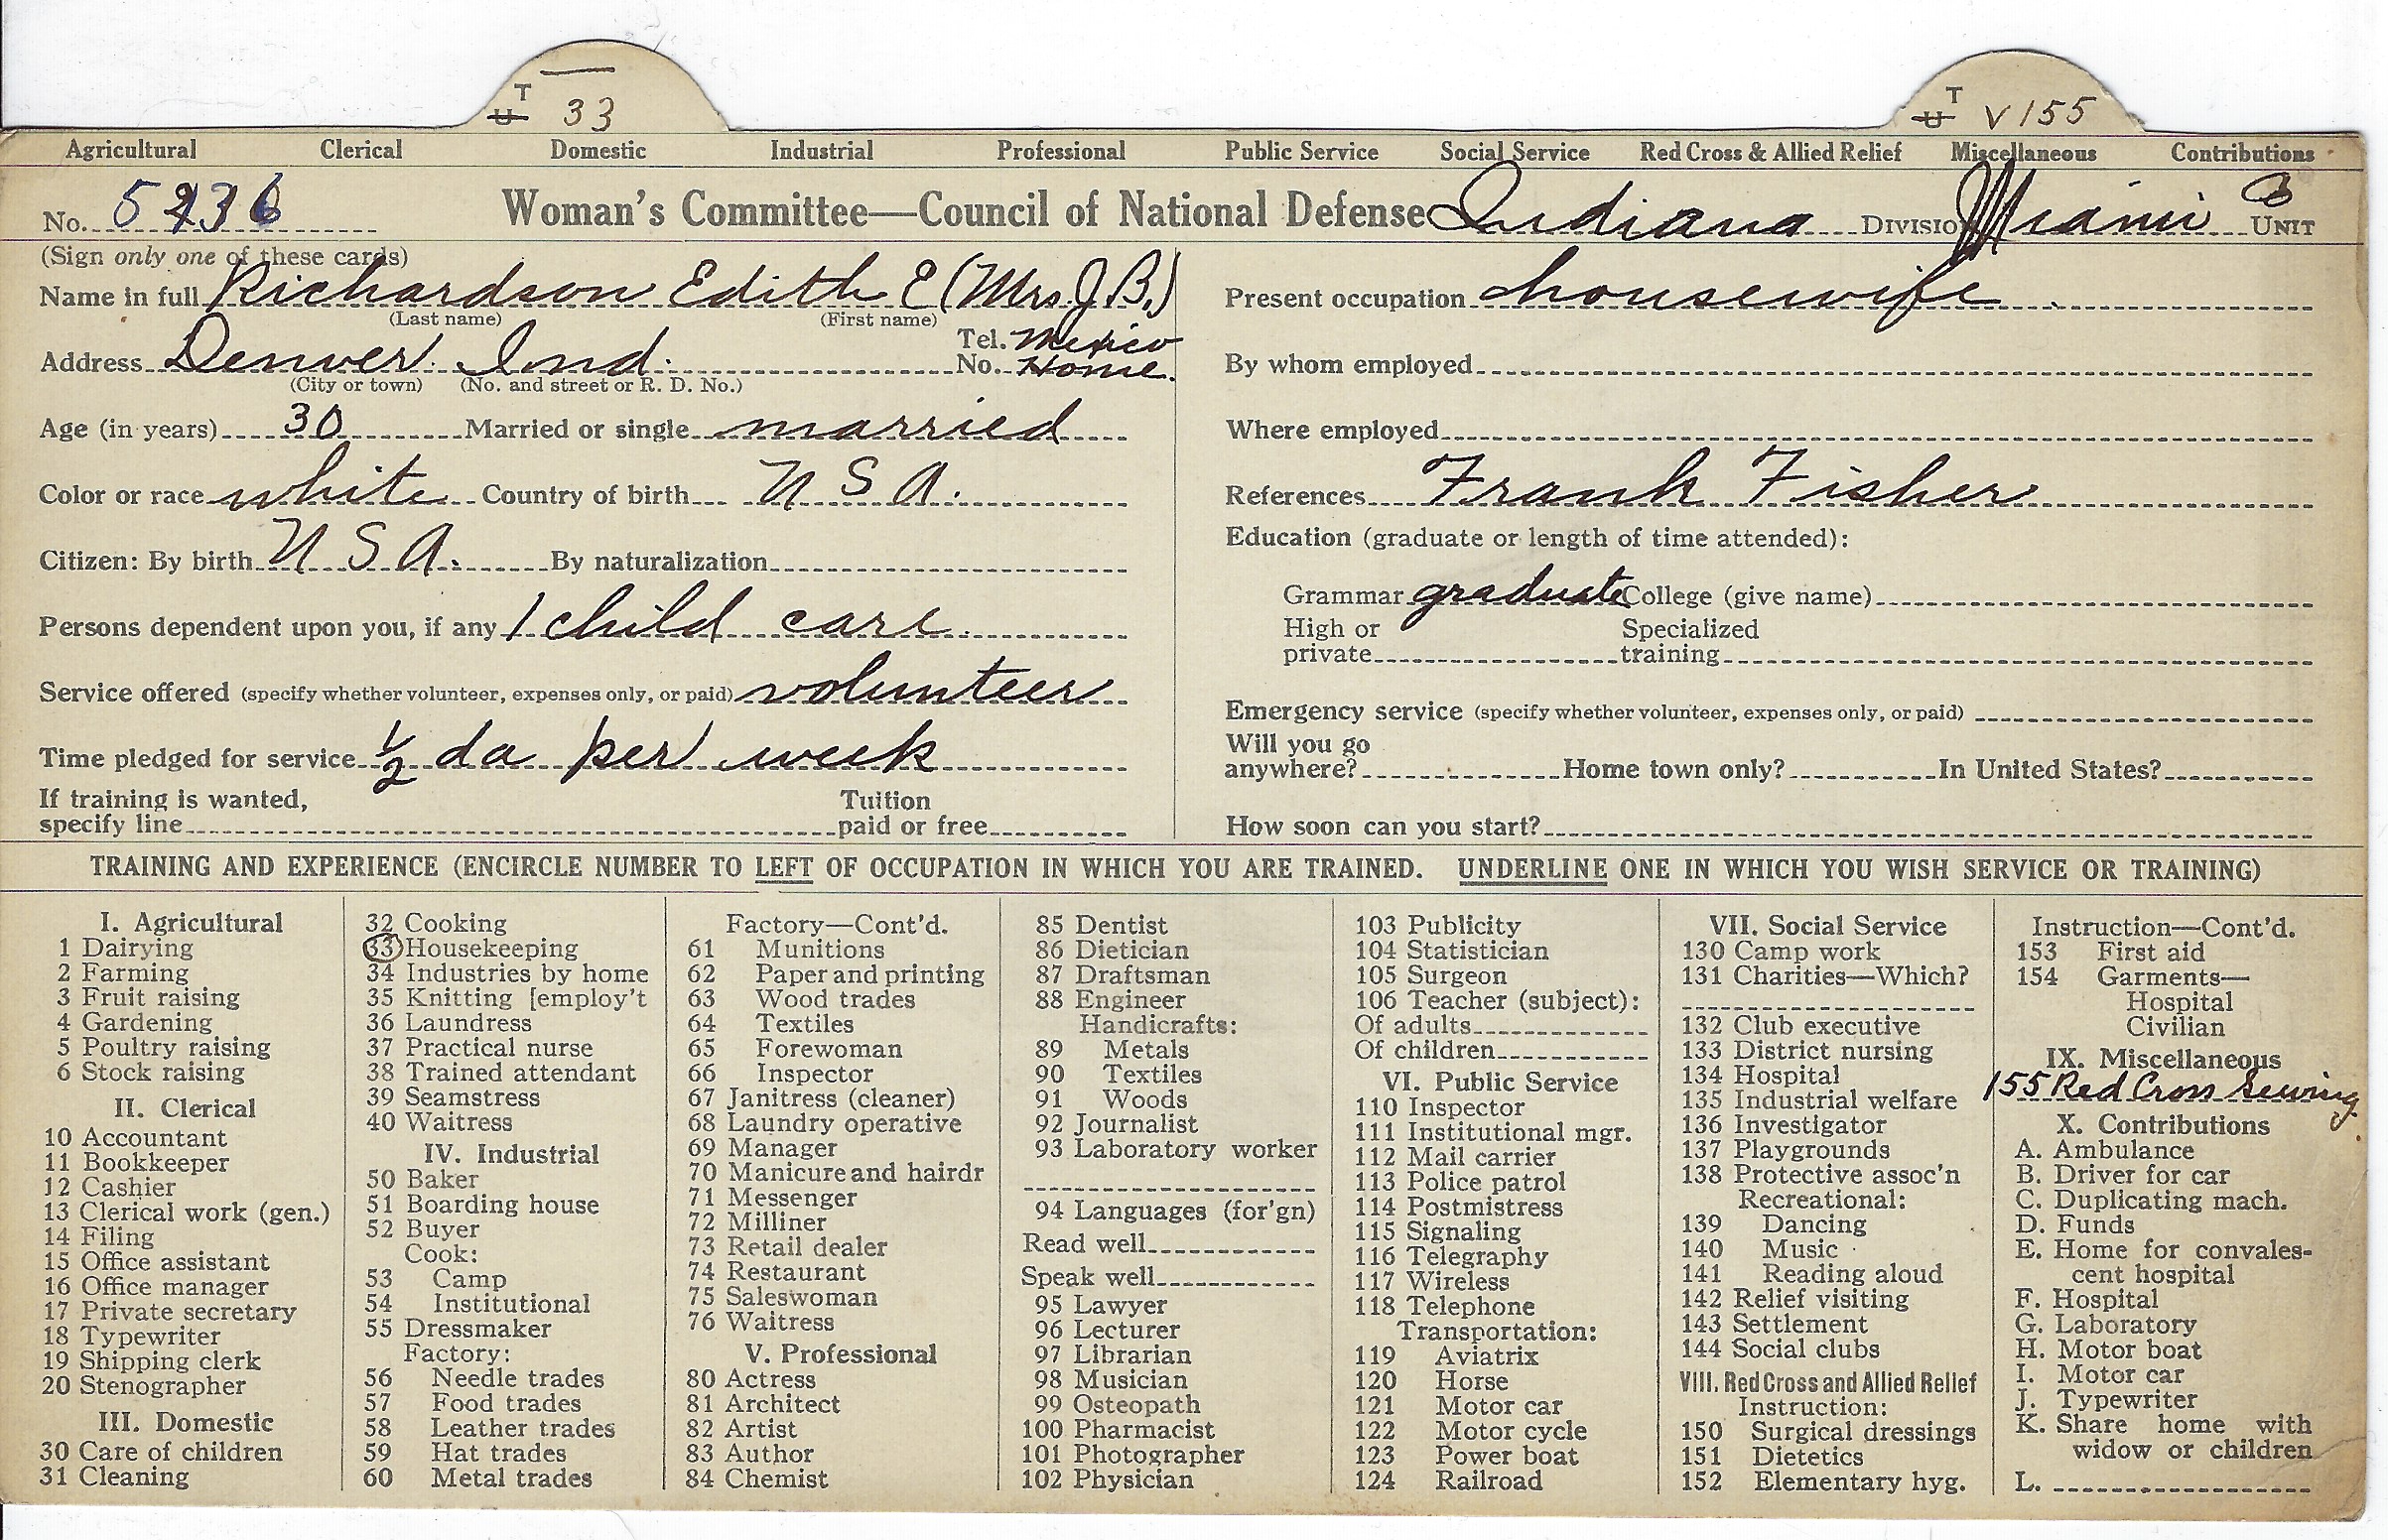 T
U 33
T
U V155
Agricultural Clerical Domestic Industrial Professional Public Service Social Service Red Cross & Allied Relief Miscellaneous Contributions
No. Woman's Committee—Council of National Defense Indiana Division Miami Unit
(Sign only one of these cards)
Name in full Richardson Edith E (Mrs. J. B.)
(Last name) (First name)
Address Denver Ind. Tel. No. Mexico Home.
(City or town) (No. and street or R. D. No.)
Age (in years) 30 Married or single married
Color or race white Country of birth U S A.
Citizen: By birth U S A. By naturalization
Persons dependent upon you, if any 1 child care
Service offered (specify whether volunteer, expenses only, or paid) volunteer
Time pledged for service 1/2 da per week
If training is wanted,
specify line
Tuition
paid or free
Present occupation housewife
By whom employed
Where employed
References Frank Fisher
Education (graduate or length of time attended):
Grammar graduate College (give name)
High or
private
Specialized
training
Emergency service (specify whether volunteer, expenses only, or paid)
Will you go
anywhere? Home town only? In United States?
How soon can you start?
TRAINING AND EXPERIENCE (ENCIRCLE NUMBER TO LEFT OF OCCUPATION IN WHICH YOU ARE TRAINED. UNDERLINE ONE IN WHICH YOU WISH SERVICE OR TRAINING)
I. Agricultural
1 Dairying
2 Farming
3 Fruit raising
4 Gardening
5 Poultry raising
6 Stock raising
II. Clerical
10 Accountant
11 Bookkeeper
12 Cashier
13 Clerical work (gen.)
14 Filing
15 Office assistant
16 Office manager
17 Private secretary
18 Typewriter
19 Shipping clerk
20 Stenographer
III. Domestic
30 Care of children
31 Cleaning
32 Cooking
33 Housekeeping
34 Industries by home
35 Knitting [employ't
36 Laundress
37 Practical nurse
38 Trained attendant
39 Seamstress
40 Waitress
IV. Industrial
50 Baker
51 Boarding house
52 Buyer
Cook:
53 Camp
54 Institutional
55 Dressmaker
Factory:
56 Needle trades
57 Food trades
58 Leather trades
59 Hat trades
60 Metal trades
Factory—Cont'd.
61 Munitions
62 Paper and printing
63 Wood trades
64 Textiles
65 Forewoman
66 Inspector
67 Janitress (cleaner)
68 Laundry operative
69 Manager
70 Manicure and hairdr
71 Messenger
72 Milliner
73 Retail dealer
74 Restaurant
75 Saleswoman
76 Waitress
V. Professional
80 Actress
81 Architect
82 Artist
83 Author
84 Chemist
85 Dentist
86 Dietician
87 Draftsman
88 Engineer
Handicrafts:
89 Metals
90 Textiles
91 Woods
92 Journalist
93 Laboratory worker
94 Languages (for'gn)
Read well
Speak well
95 Lawyer
96 Lecturer
97 Librarian
98 Musician
99 Osteopath
100 Pharmacist
101 Photographer
102 Physician
103 Publicity
104 Statistician
105 Surgeon
106 Teacher (subject):
Of adults
Of children
VI. Public Service
110 Inspector
111 Institutional mgr.
112 Mail carrier
113 Police patrol
114 Postmistress
115 Signaling
116 Telegraphy
117 Wireless
118 Telephone
Transportation:
119 Aviatrix
120 Horse
121 Motor car
122 Motor cycle
123 Power boat
124 Railroad
VII. Social Service
130 Camp work
131 Charities—Which?
132 Club executive
133 District nursing
134 Hospital
135 Industrial welfare
136 Investigator
137 Playgrounds
138 Protective assoc'n
Recreational:
139 Dancing
140 Music
141 Reading aloud
142 Relief visiting
143 Settlement
144 Social clubs
VIII. Red Cross and Allied Relief
Instruction:
150 Surgical dressings
151 Dietetics
152 Elementary hyg.
Instruction—Cont'd.
153 First aid
154 Garments—
Hospital
Civilian
IX. Miscellaneous
155 Red Cross Sewing
X. Contributions
A. Ambulance
B. Driver for car
C. Duplicating mach.
D. Funds
E. Home for convales-
cent hospital
F. Hospital
G. Laboratory
H. Motor boat
I. Motor car
J. Typewriter
K. Share home with
widow or children
L.